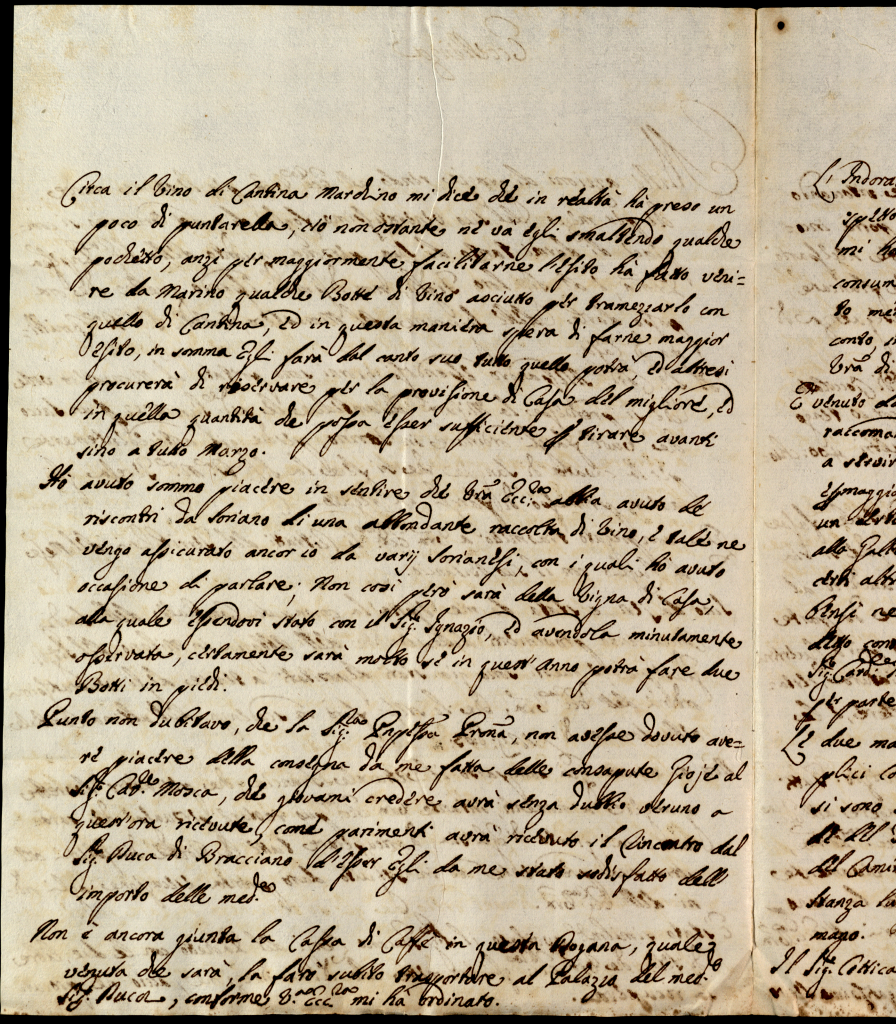 Circa il Vino di Cantina Mardino mi dice che in realtà ha preso un
poco di puntarella, ciò non ostante ne và Egli smaltendo qualche
pochetto, anzi per maggiormente facilitarne l'esito hà fatto veni=
re da Marino qualche Botte di Vino asciutto per tramezzarlo con
quello di Cantina, ed in questa maniera spera di farne maggior
esito, in somma Egli farà dal canto suo tutto quello potrà, ed altresì
procurerà di riservare per la provisione di Casa del migliore, ed
in quella quantità che possa esser sufficiente p tirare avanti
sino a tutto Marzo.
Hò avuto sommo piacere in sentire che Vrã Ecc.za abbia avuto de
riscontri da Soriano di una abbondante raccolta di Vino, e tale ne
vengo assicurato ancor io da varij Sorianesi, con i quali hò avuto
occasione di parlare; Non così però sarà della Vigna di Casa,
alla quale essendovi stato con il Sig.r Ignazio, ed avendola minutamente
osservata, certamente sarà molto se in quest'anno potrà fare due
Botti in piedi.
Punto non dubitavo, che la Sig.ra Pnpessa Pronã, non avesse dovuto ave=
re piacere della consegna da me fatta delle consapute Gioje al
Sig.r Cav.re Mosca, che giovami credere avrà senza dubbio veruno a
quest'ora ricevute, come parimenti avrà ricevuto il rincontro dal
Sig.r Duca di Bracciano d'esser Egli da me stato sodisfatto dell
importo delle med.e
Non è ancora giunta la Cassa di Caffè in questa Dogana, quale
venuta che sarà, la farò subito trasportare al Palazzo del med.o
Sig.r Duca, conforme V.ra Ecc.za mi hà ordinato.
Li Indora
spetto
mi
consum
to me
conto, s
Vrã di
È venuto
raccoma
a servir
un
alla
altr
Pensi ne
detto
Sig.r Card.
per parte
Le due ma
plici
si sono
de del
del Cami
stanza
mano.
Il Sig.r